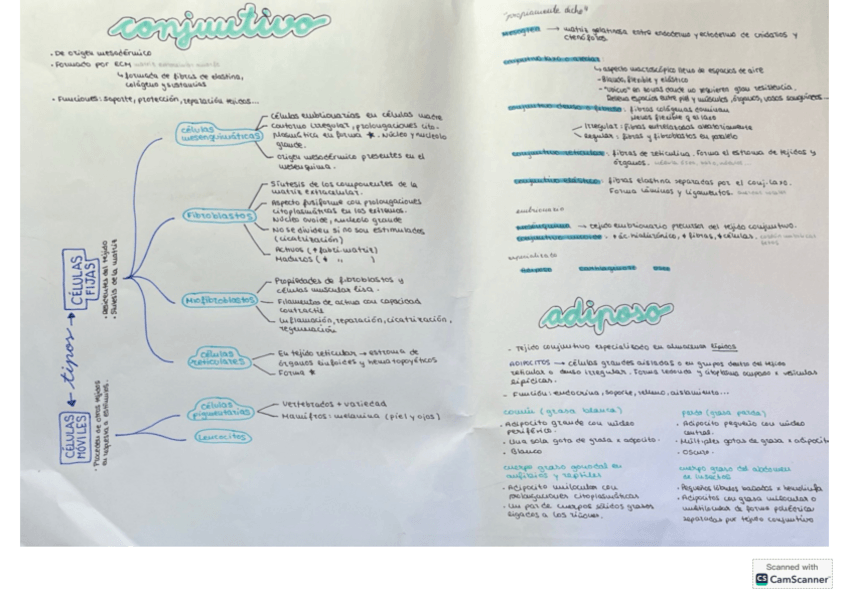 conjuntivo
· De origen mesodérmico
· Formado por ECM
↳ formada de fibras de elastina,
colágeno y sustancias
· Funciones: soporte, protección, reparación tejidos...
tipos
CÉLULAS FIJAS
· Residentes del tejido
· Síntesis de la matriz
células mesenquimáticas
Células embrionarias en células madre
Contorno irregular, prolongaciones cito.
Numática en forma ★. Núcleo y nucleolo
grande.
Origen mesodérmico presentes en el
mesénquima.
Fibroblastos
Síntesis de los componentes de la
matriz extracelular.
Aspecto fusiforme con prolongaciones
citoplasmáticas en los extremos.
Núcleo ovoide, nucleolo grande
No se dividen si no son estimulados
(cicatrización)
Activos (+ fabri. matriz)
Maduros (+ " )
Miofibroblastos
Propiedades de fibroblastos y
células muscular lisa.
Filamentos de actina con capacidad
contractil
Inflamación, reparación, cicatrización,
regeneración
células reticulares
En tejido reticular → estroma de
órganos linfoides y hematopoyéticos
Forma ★
CÉLULAS MÓVILES
· Procedentes de otros tejidos
en respuesta a estímulos.
células pigmentarias
Vertebrados + variedad
Mamífros: melanina (piel y ojos)
Leucocitos
"propiamente dicho"
mesoglea → matriz gelatinosa entre endodermo y ectodermo de cnidarios y
ctenóforos.
conjuntivo laxo o areolar
↳ aspecto macroscópico lleno de espacios de aire
- Blando, flexible y elástico
- "Ubicuo" en zonas donde no requieren gran resistencia.
Rellena espacios entre piel y músculos, órganos, vasos sanguíneos...
conjuntivo denso : fibras colágenas dominan
Menos flexible q el laxo
Irregular: fibras entrelazadas aleatoriamente
Regular: fibras y fibroblastos en paralelo
conjuntivo reticular: fibras de reticulina. Forma el estroma de tejidos y
órganos.
conjuntivo elástico: fibras elastina separadas por el conj. laxo.
Forma láminas y ligamentos.
embrionario
mesénquima → tejido embrionario precursor del tejido conjuntivo.
conjuntivo mucoso. + ác. hialurónico, + fibras, + células.
especializado
adiposo cartilaginoso oseo
adiposo
- Tejido conjuntivo especializado en almacenar lípidos
ADIPOCITOS → células grandes aisladas o en grupos dentro de tejido
reticular o denso irregular. Forma redonda y citoplasma ocupado x vesículas
lipídicas.
- Función: endocrina, soporte, relleno, aislamiento...
común (grasa blanca)
· Adipocito grande con núcleo
periférico.
· Una sola gota de grasa x adipocito.
· Blanco
parda (grasa parda)
· Adipocito pequeño con núcleo
central.
· Múltiples gotas de grasa x adipocit
· Oscuro.
cuerpo graso gonadal en
anfibios y reptiles
· Adipocito unilocular con
prolongaciones citoplasmáticas
· Un par de cuerpos sólidos grasos
ligados a los riñones.
cuerpo graso del abdomen
de insectos
· Pequeños lóbulos bañados x hemolinfa
· Adipocitos con grasa unilocular o
multilocular de forma poliédrica
separadas por tejido conjuntivo
Scanned with
CS CamScanner